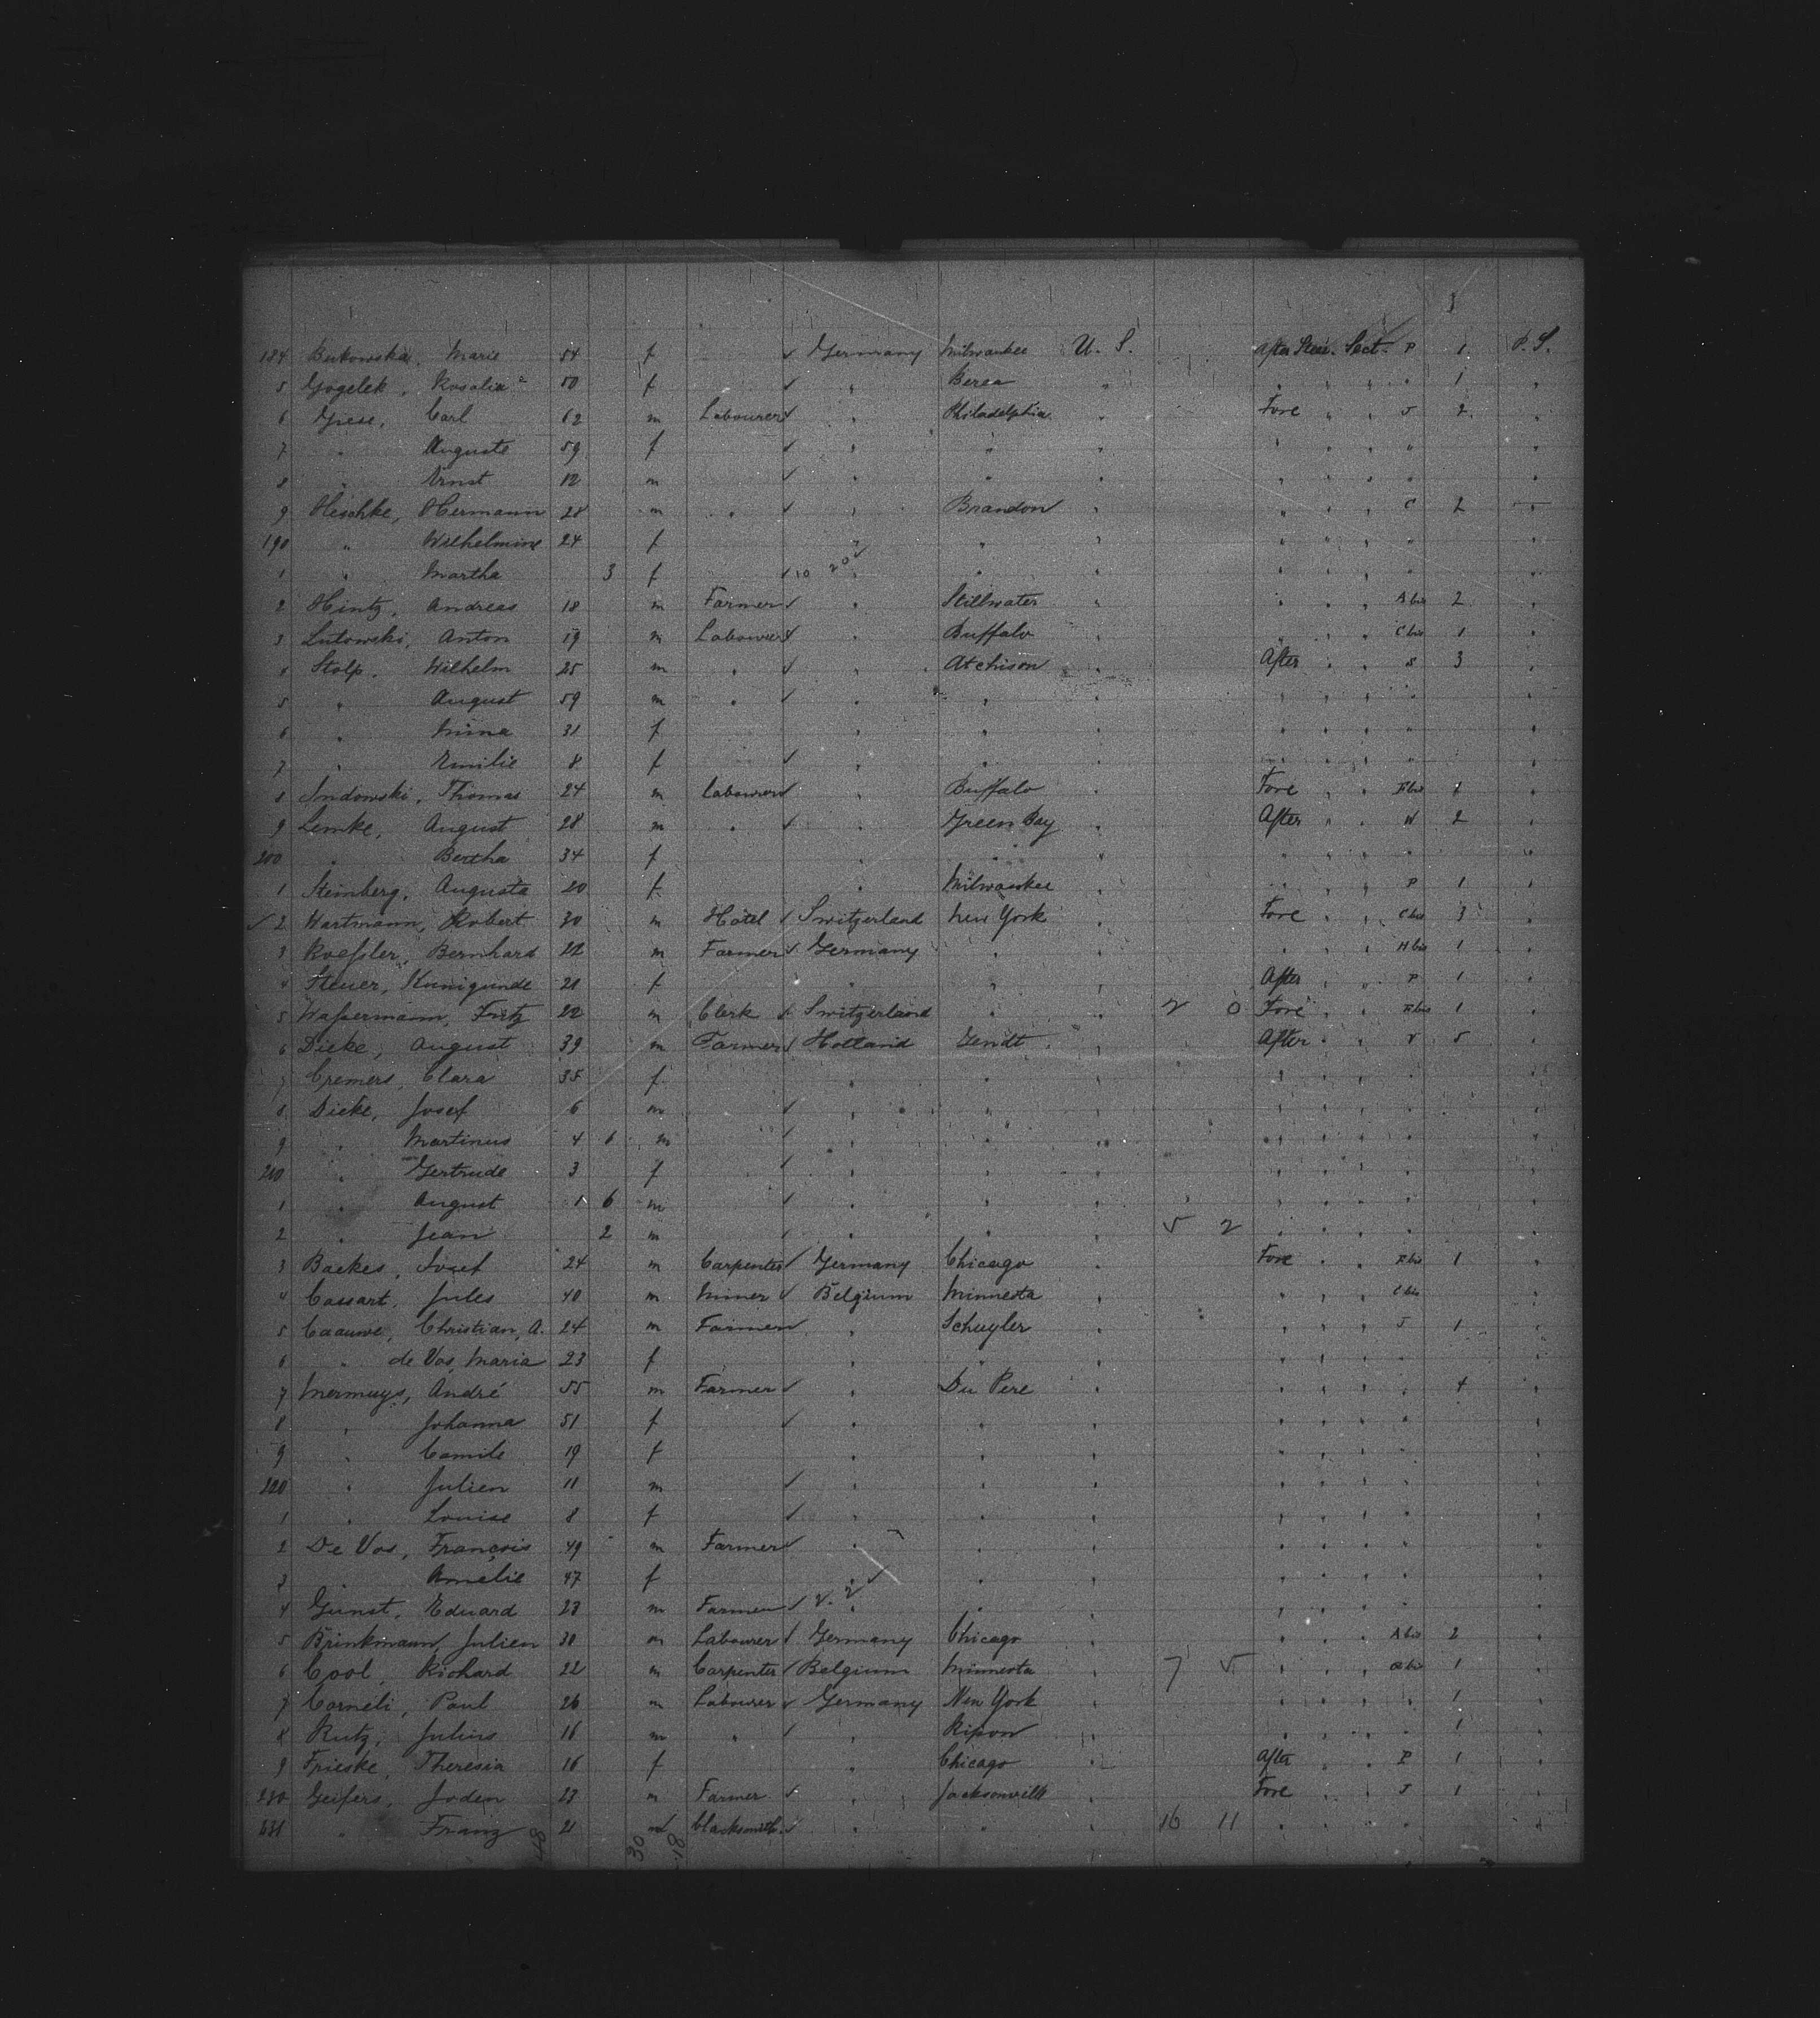 184 Butowska, Marie 54 f Germany Milwaukee U. S. After Steer. Sect. P 1 P. S.
5 Gogelek, Rosalia 50 f " Berea " " " " " 1 "
6 Giese, Carl 62 m Labourer " Philadelphia " Fore " " J 2 "
7 " Auguste 59 f " " " " " " " "
8 " Ernst 12 m " " " " " " " "
9 Heschke, Hermann 28 m " " Brandon " " " " C 2 "
190 " Wilhelmine 24 f " " " " " " " "
1 " Martha 3 f 10 20 " " " " " " " "
2 Hintz, Andreas 18 m Farmer " Stillwater " " " " A bis 2 "
3 Lutowski, Anton 19 m Labourer " Buffalo " " " " C bis 1 "
4 Stolp, Wilhelm 25 m " " Atchison " After " " S 3 "
5 " August 59 m " " " " " " " " "
6 " Mina 31 f " " " " " " " "
7 " Emilie 8 f " " " " " " " "
8 Indowski, Thomas 24 m Labourer " Buffalo " Fore " " F bis 1 "
9 Lemke, August 28 m " " Green Bay " After " " W 2 "
200 " Bertha 34 f " " " " " " " "
1 Steinberg, Augusta 20 f " Milwaukee " " " " P 1 "
2 Wartmann, Robert 30 m Hotel Switzerland New York " Fore " " C bis 3 "
3 Roessler, Bernhard 22 m Farmer Germany " " " " " H bis 1 "
4 Steuer, Kunigunde 21 f " " " After " " P 1 "
5 Wassermann, Fritz 22 m Clerk Switzerland " " 2 0 Fore " " F bis 1 "
6 Dicke, August 39 m Farmer Holland Gendt " After " " Y 5 "
7 Cremers, Clara 35 f " " " " " " " "
8 Dicke, Josef 6 m " " " " " " " "
9 " Martinus 4 6 m " " " " " " " "
210 " Gertrude 3 f " " " " " " " "
1 " August 1 6 m " " " " " " " "
2 " Jean 2 m " " " 5 2 " " " " "
3 Backes, Josef 24 m Carpenter Germany Chicago " Fore " " F bis 1 "
4 Cassart, Jules 40 m Miner Belgium Minnesota " " " " C bis "
5 Caauwe, Christian, A. 24 m Farmer " Schuyler " " " " J 1 "
6 " de Vos, Maria 23 f " " " " " " " "
7 Mermuys, André 55 m Farmer " Du Pere " " " " " 4 "
8 " Johanna 51 f " " " " " " " "
9 " Camile 19 f " " " " " " " "
220 " Julien 11 m " " " " " " " "
1 " Louise 8 f " " " " " " " "
2 De Vos, François 49 m Farmer " " " " " " " "
3 " Amelie 47 f " " " " " " " "
4 Gunst, Eduard 23 m Farmer " " " " " " " "
5 Brinkmann, Julien 30 m Labourer Germany Chicago " " " " A bis 2 "
6 Cool, Richard 22 m Carpenter Belgium Minnesota " 7 5 " " " bis 1 "
7 Corneli, Paul 26 m Labourer Germany New York " " " " " 1 "
8 Rutz, Julius 16 m " " Ripon " " " " " 1 "
9 Frieske, Theresia 16 f " Chicago " After " " P 1 "
230 Geifers, Joden 23 m Farmer " Jacksonville " Fore " " J 1 "
231 " Franz 21 m blacksmith " " 16 11 " " " " "
48 30 18